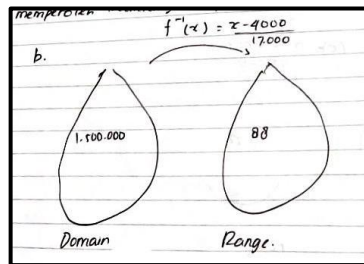 memperoleh
f⁻¹(x) = x-4000
17.000
b.
1.500.000 88
Domain Range.